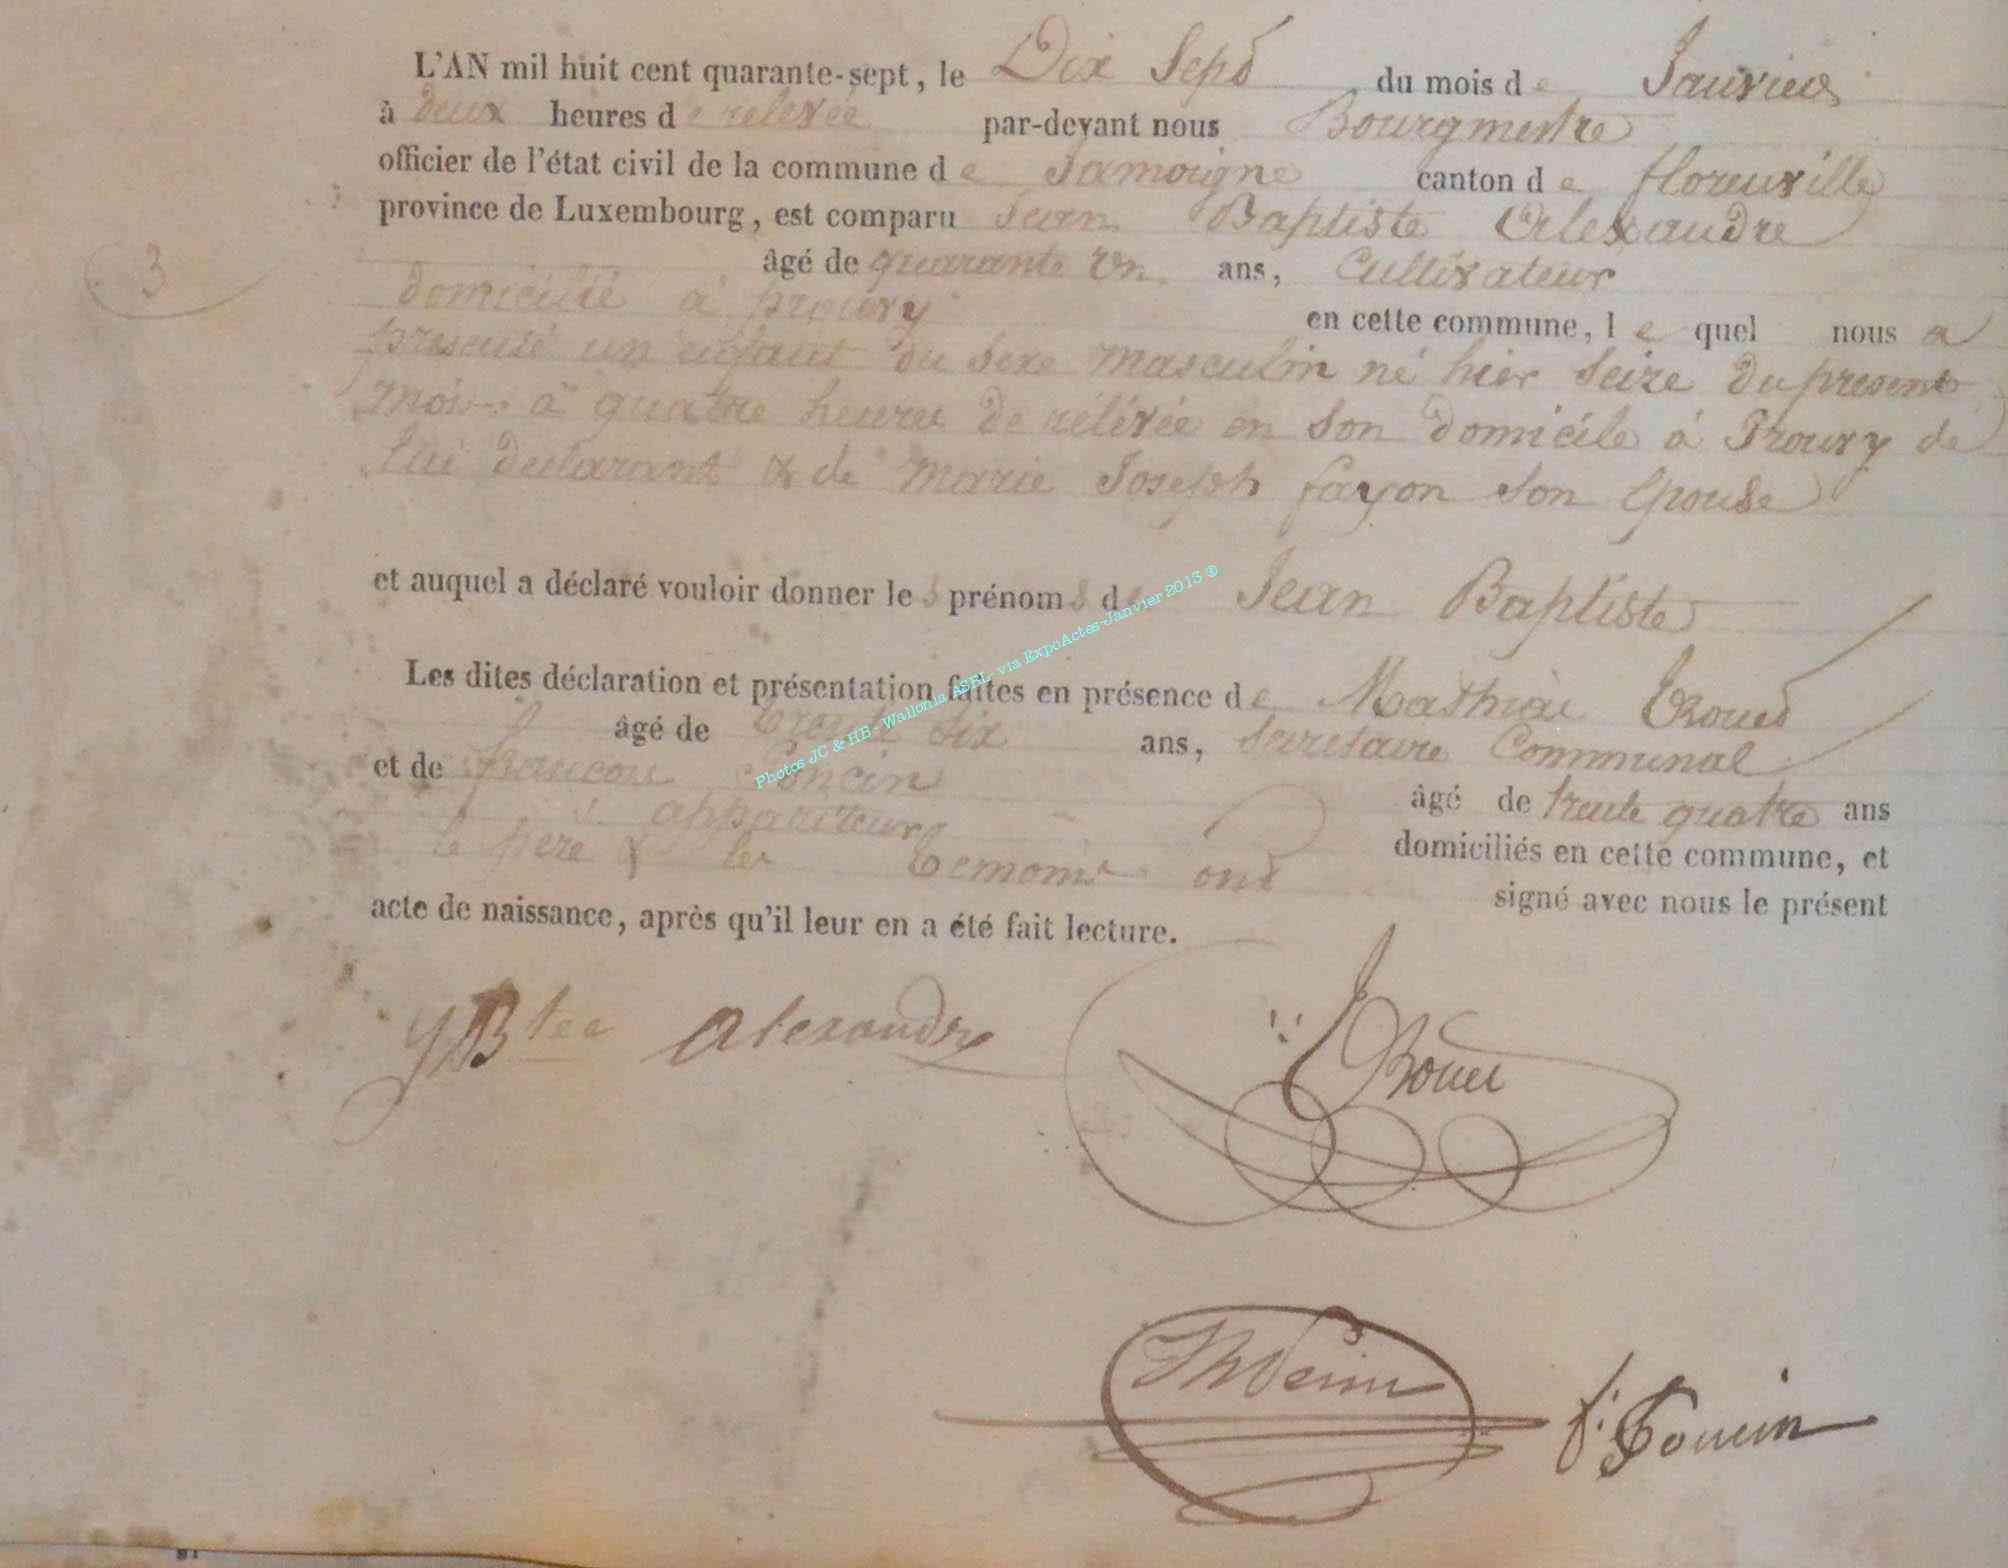 L'AN mil huit cent quarante-sept, le Dix Sept du mois de Janvier
à deux heures de relevée par-devant nous Bourgmestre
officier de l'état civil de la commune de Jamoigne canton de florenville
province de Luxembourg, est comparu Jean Baptiste Alexandre
3
âgé de quarante Un ans, Cultivateur
domicilié à prouvy en cette commune, lequel nous a
presenté un enfant du sexe masculin né hier seize du present
mois à quatre heures de rélévée en son domicile à Prouvy de
lui declarant & de Marie Joseph fayon son Epouse
et auquel a déclaré vouloir donner les prénoms de Jean Baptiste
Les dites déclaration et présentation faites en présence de Mathias
âgé de trente six ans, Secretaire Communal
et de francois âgé de trente quatre ans
appariteur domiciliés en cette commune, et
le père & les temoins ont signé avec nous le présent
acte de naissance, après qu'il leur en a été fait lecture.
Alexandre
Photos JC & HB - Wallonia ASBL - via ExpoActes-Janvier 2013 ®